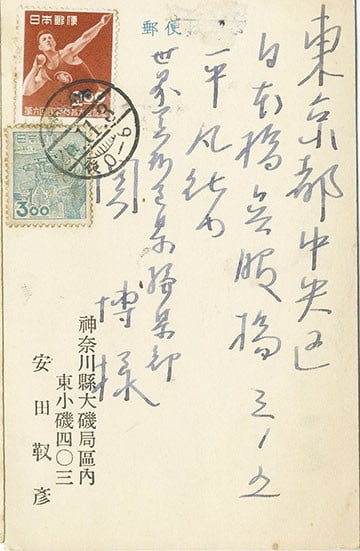 郵便
東京都中央区
日本橋呉服橋三ノ五
平凡社内
世界美術全集編集部
関 博様
神奈川縣大磯局區内
東小磯四〇三
安田靫彦
日本郵便
2.00
3.00